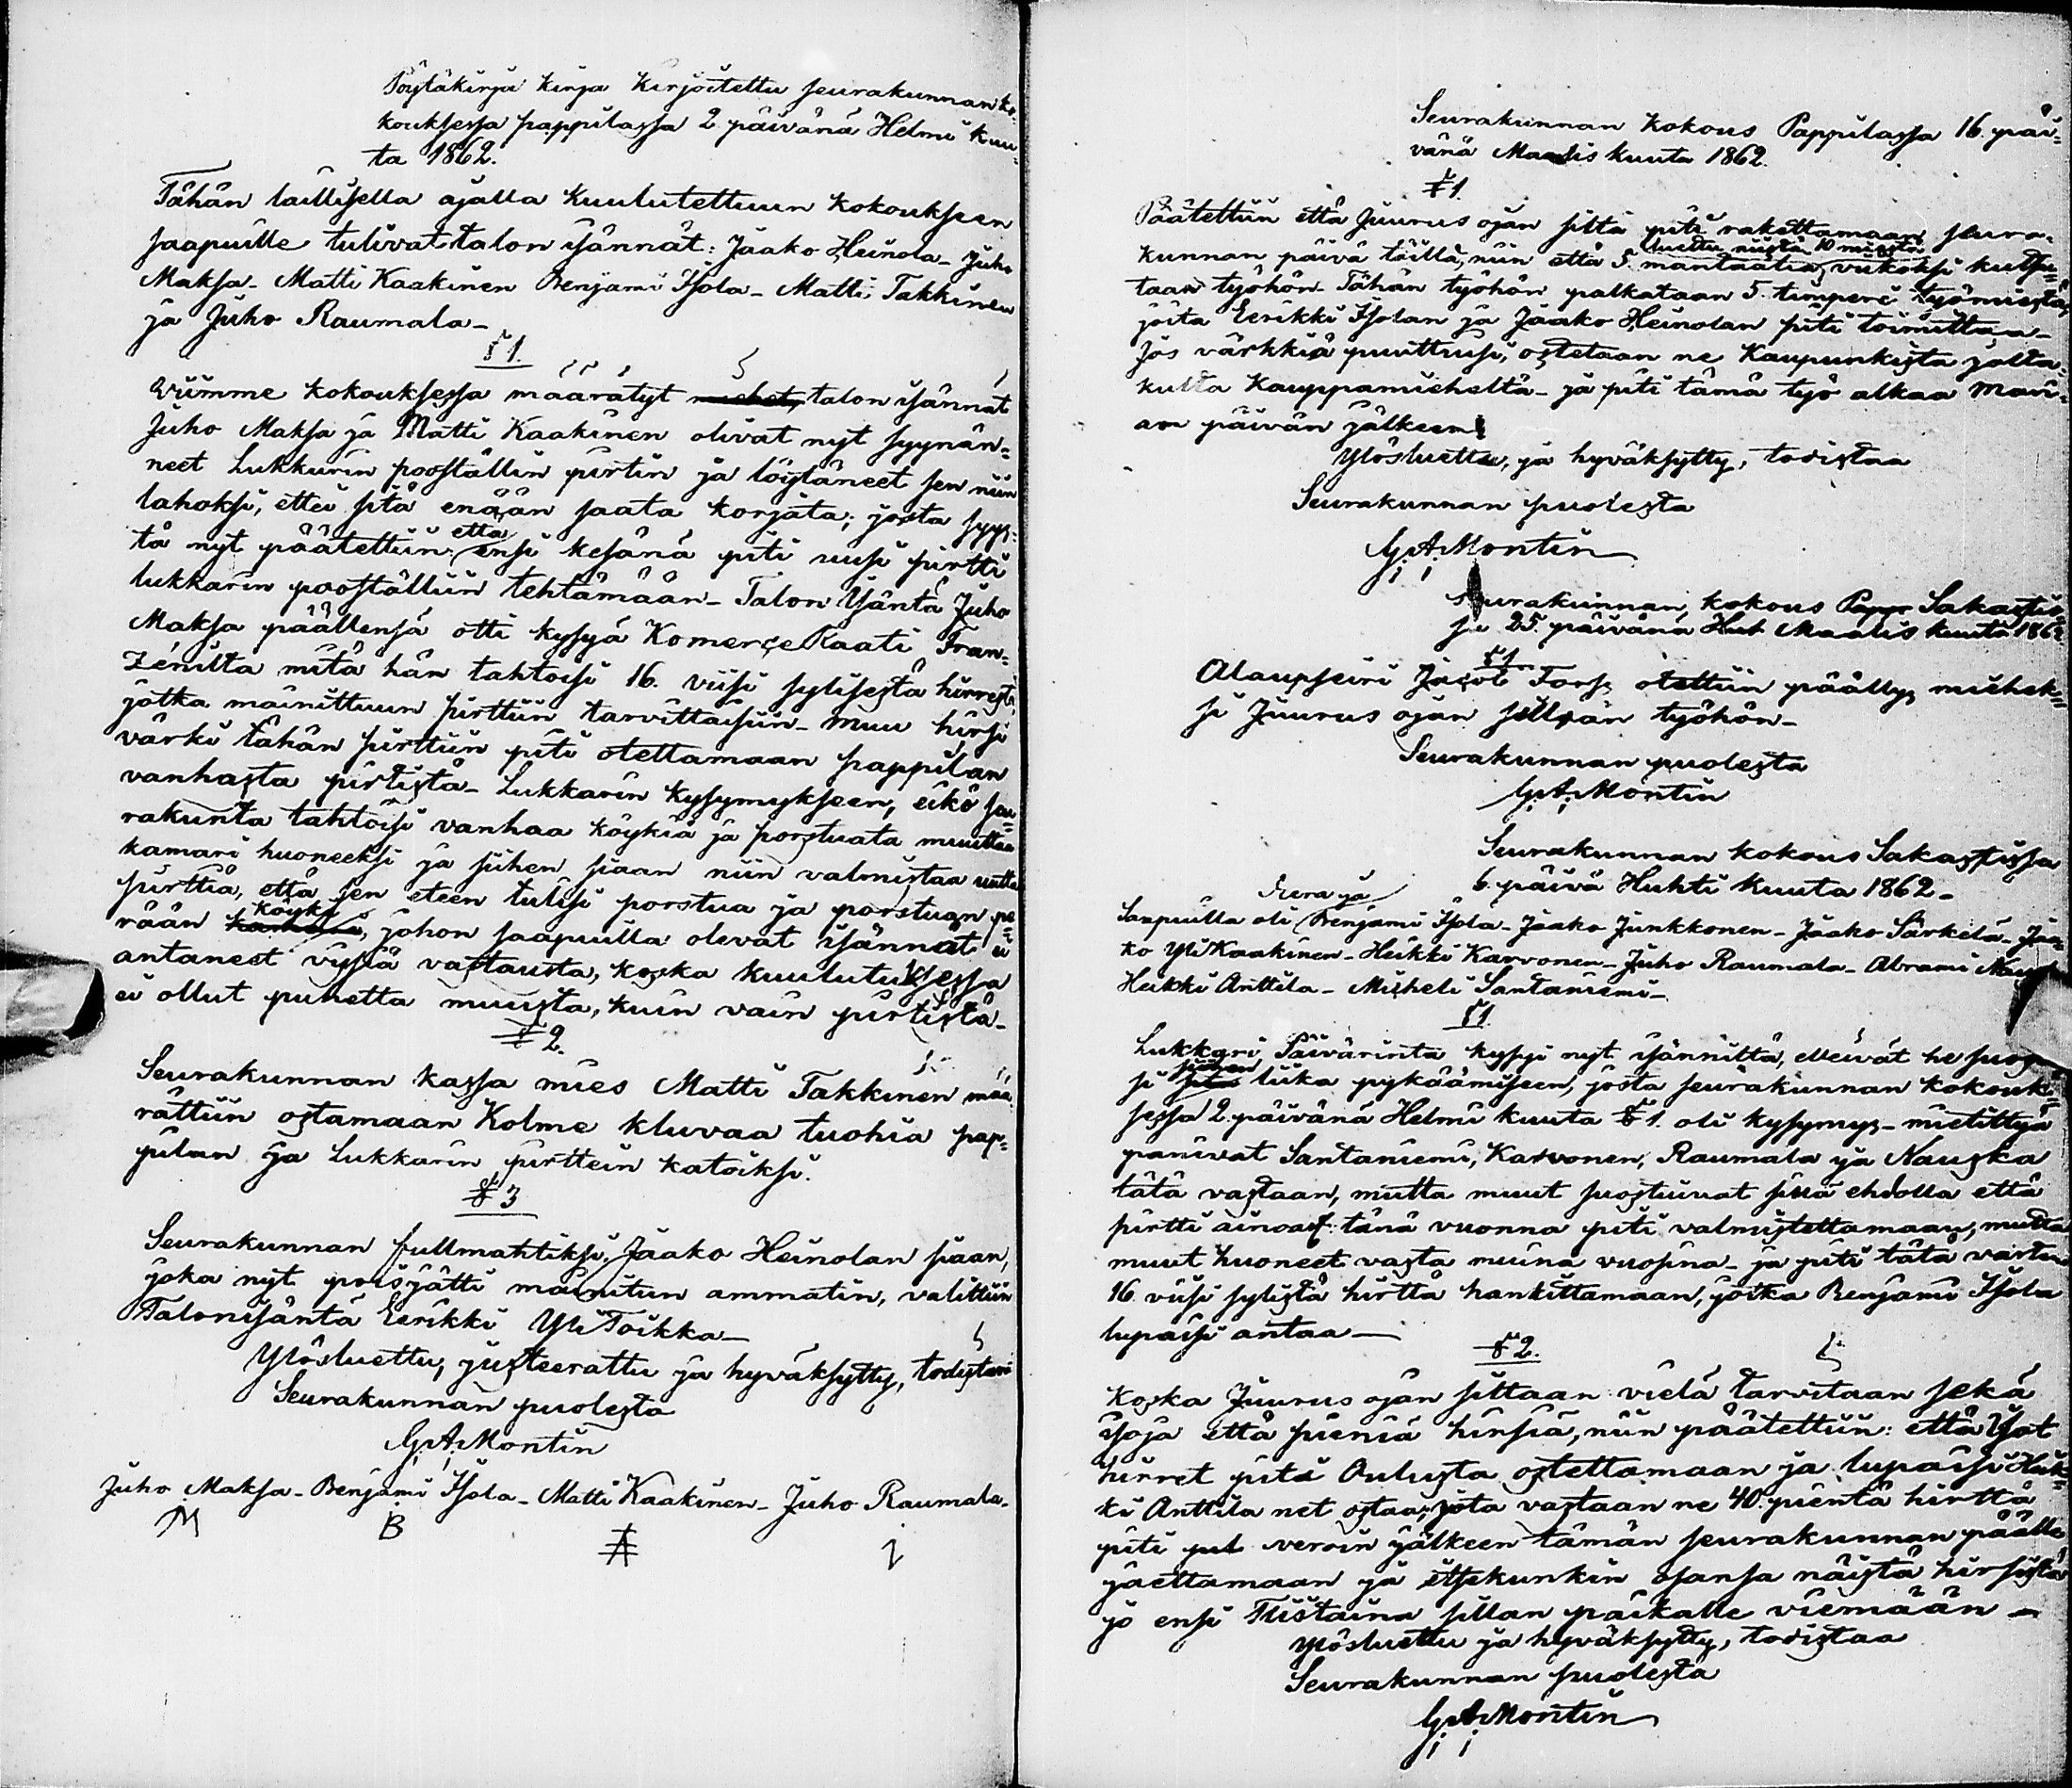 Pöytäkirja kirja kirjoitettu seurakunnan ko-
kouksessa pappilassa 2 päivänä Helmi kuu-
ta 1862.
Tähän laillisella ajalla kuulutettuun kokoukseen
saapuille tulivat talon isännät: Jaako Heinola - Juho
Maksa - Matti Kaakinen Benjami Isola - Matti Takkinen
ja Juho Raumala -
§ 1.
Viimme kokouksessa määrätyt miehet, talon isännät
Juho Maksa ja Matti Kaakinen olivat nyt synän-
neet Lukkarin poostallin pirtin ja löytäneet sen niin
lahoksi, ettei sitä enään saata korjata; josta syys-
tä nyt päätettiin, että ensi kesänä piti uusi pirtti
lukkarin poostalliin tehtämään - Talon Isäntä Juho
Maksa päällensä otti kysyä Komerce Raati Fran-
zénilta mitä hän tahtoisi 16. viisi sylisestä hirrestä,
jotka mainittuun pirttiin tarvittaisiin - muu hirsi
värki tähän pirttiin piti otettamaan pappilan
vanhasta pirtistä - Lukkarin kysymykseen, eikö seu-
rakunta tahtoisi vanhaa köykiä ja porstuata muuttaa
kamari huoneeksi ja siihen siaan niin valmistaa uutta
pirttiä, että sen eteen tulisi porstua ja porstuan pe-
rään köyki, johon saapuilla olevat isännät ei
antaneet vissiä vastausta, koska kuulutuksessa
ei ollut puhetta muusta, kuin vain pirtistä -
§ 2.
Seurakunnan kassa mies Matti Takkinen mää-
rättiin ostamaan Kolme kluvaa tuohia pap-
pilan ja Lukkarin pirttein katoiksi.
§ 3
Seurakunnan fullmahtiksi, Jaako Heinolan siaan,
joka nyt poisjätti mainitun ammatin, valittiin
Talonisäntä Eerikki Yli Toikka -
Ylösluettu, justeerattu ja hyväksytty, todistavi
Seurakunnan puolesta
G. A. Montin
Juho Maksa - Benjami Isola - Matti Kaakinen - Juho Raumala.
M B
Seurakunnan kokous Pappilassa 16. päi-
vänä Maalis kuuta 1862.
§ 1.
Päätettiin että Juurus ojan silta piti rakettamaan seura-
kunnan päivä töillä, niin että 5. mantaalia, luettu niistä 10 miestä viikoksi kutsu-
taan työhön - Tähän työhön palkataan 5. timperi työmiestä,
joita Eerikki Isolan ja Jaako Heinolan piti toimittaa -
Jos värkkiä puuttuisi, ostetaan ne Kaupunkista jolta-
kulta Kauppamieheltä - ja piti tämä työ alkaa Mari-
an päivän jälkeen
Ylösluettu, ja hyväksytty, todistaa
Seurakunnan puolesta
G. A. Montin
Seurakunnan, kokous Sakastis-
sa 25. päivänä Maalis kuuta 1862
§ 1
Alaupseiri Jacob Fors otettiin päällys miehek-
si Juurus ojan sillan työhön -
Seurakunnan puolesta
G. A. Montin
Seurakunnan kokous Sakastissa
6. päivä Huhti kuuta 1862 -
Saapuilla oli Benjami Isola - Jaako Junkkonen - Jaako Särkelä - Jaa-
ko Yli Kaakinen - Heikki Karvonen - Juho Raumala - Abrami
Heikki Anttila - Miheli Santaniemi -
§ 1
Lukkari, Päivärinta kysyi nyt isänniltä, elleivät he suos-
si siihen liika pykäämiseen, josta seurakunnan kokouk-
sessa 2. päivänä Helmi kuuta § 1. oli kysymys - mietittyä
panivat Santaniemi, Karvonen, Raumala ja Nauska
tätä vastaan, mutta muut suostuivat sillä ehdolla että
pirtti ainoast. tänä vuonna piti valmistettamaan, mutta
muut huoneet vasta muina vuosina - ja piti tätä varten
16. viisi sylistä hirttä hankittamaan, joita Benjami Isola
lupaisi antaa -
§ 2.
Koska Juurus ojan siltaan vielä tarvitaan sekä
isoja että pieniä hirsiä, niin päätettiin: että Isot
hirret pitä Oulusta ostettamaan ja lupaisi Heik-
ki Anttila net ostaa; jota vastaan ne 40. pientä hirttä
piti veroin jälkeen tämän seurakunnan päälle
jaettamaan ja itsekunkin osansa näistä hirsistä
jo ensi Tiistaina sillan paikalle viemään -
Ylösluettu ja hyväksytty, todistaa
Seurakunnan puolesta
G. A. Montin